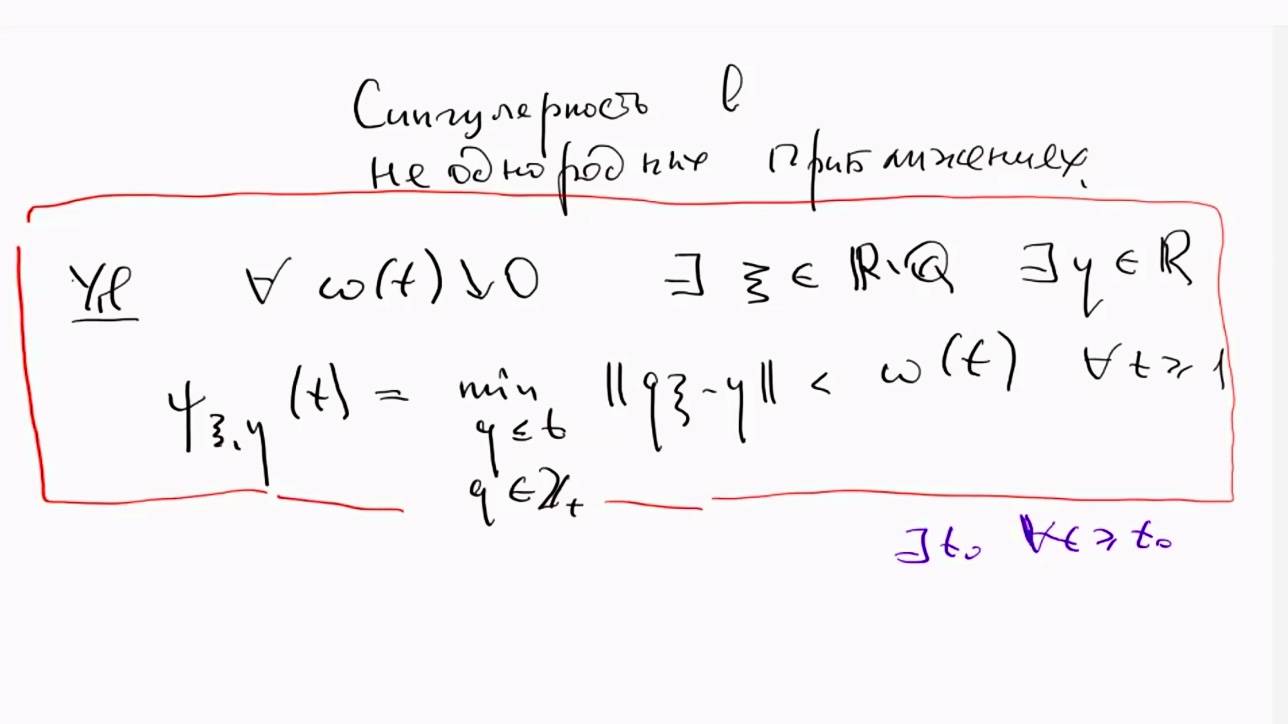 Сингулярность в
неоднородных приближениях.
Утв ∀ ω(t) ↓ 0 ∃ ξ ∈ ℝ∖ℚ ∃ η ∈ ℝ
ψ_{ξ,η}(t) = min_{q ≤ t, q ∈ ℤ_+} ||qξ - η|| < ω(t) ∀ t ≥ 1
∃ t₀ ∀ t ≥ t₀